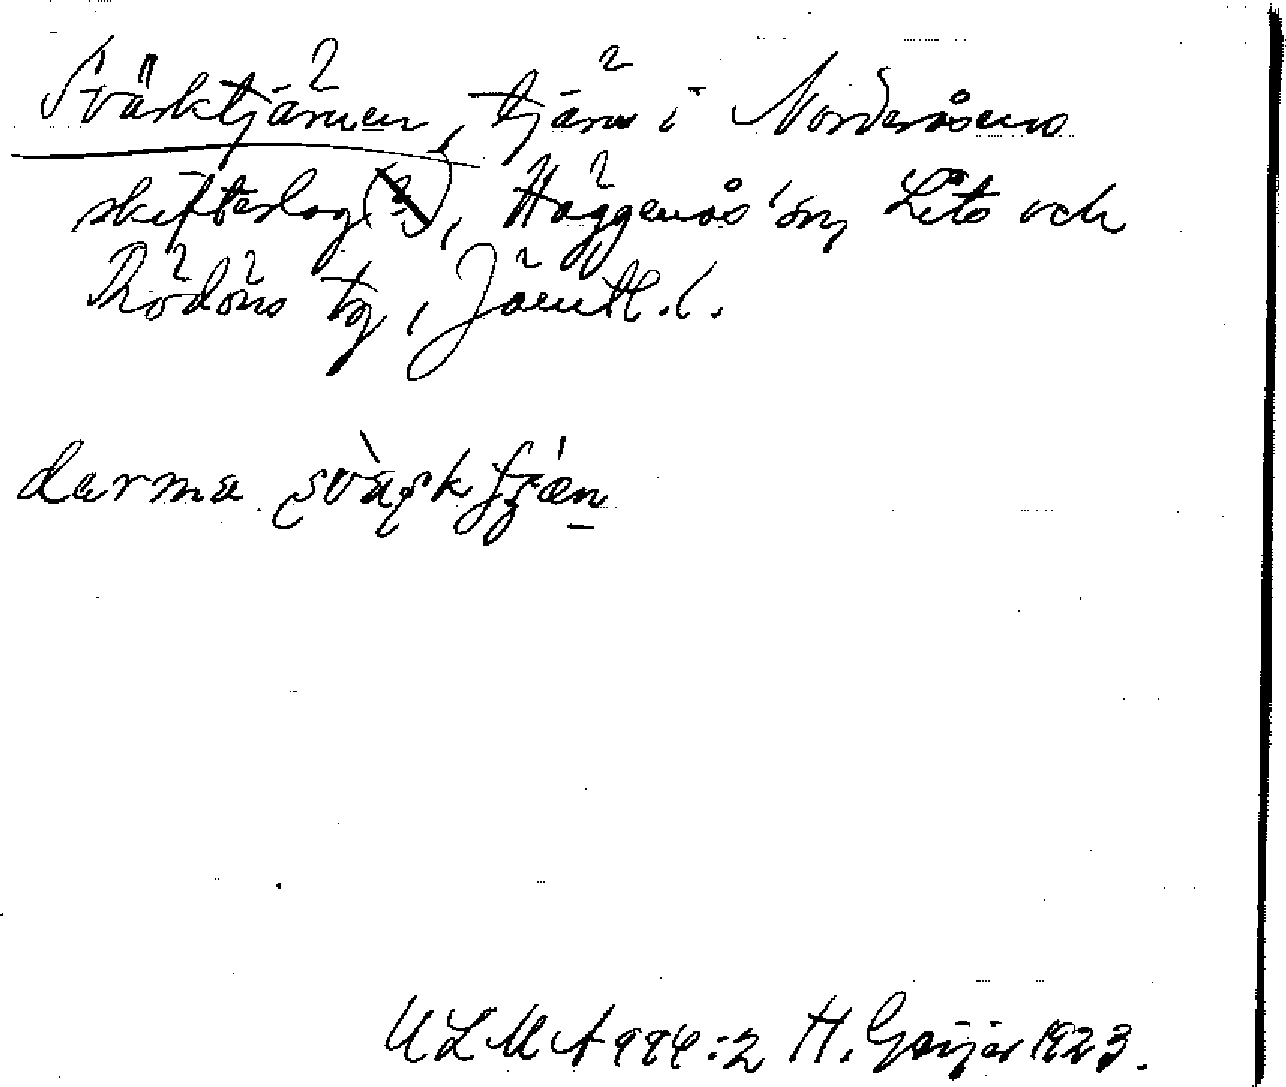 Svärktjärnen, tjärn i Norderåsens
skifteslag (?), Häggenås sn, Lits och
Rödöns tg, Jämtl. l.
darma
ULMA 994:2 H. Geijer 1923.